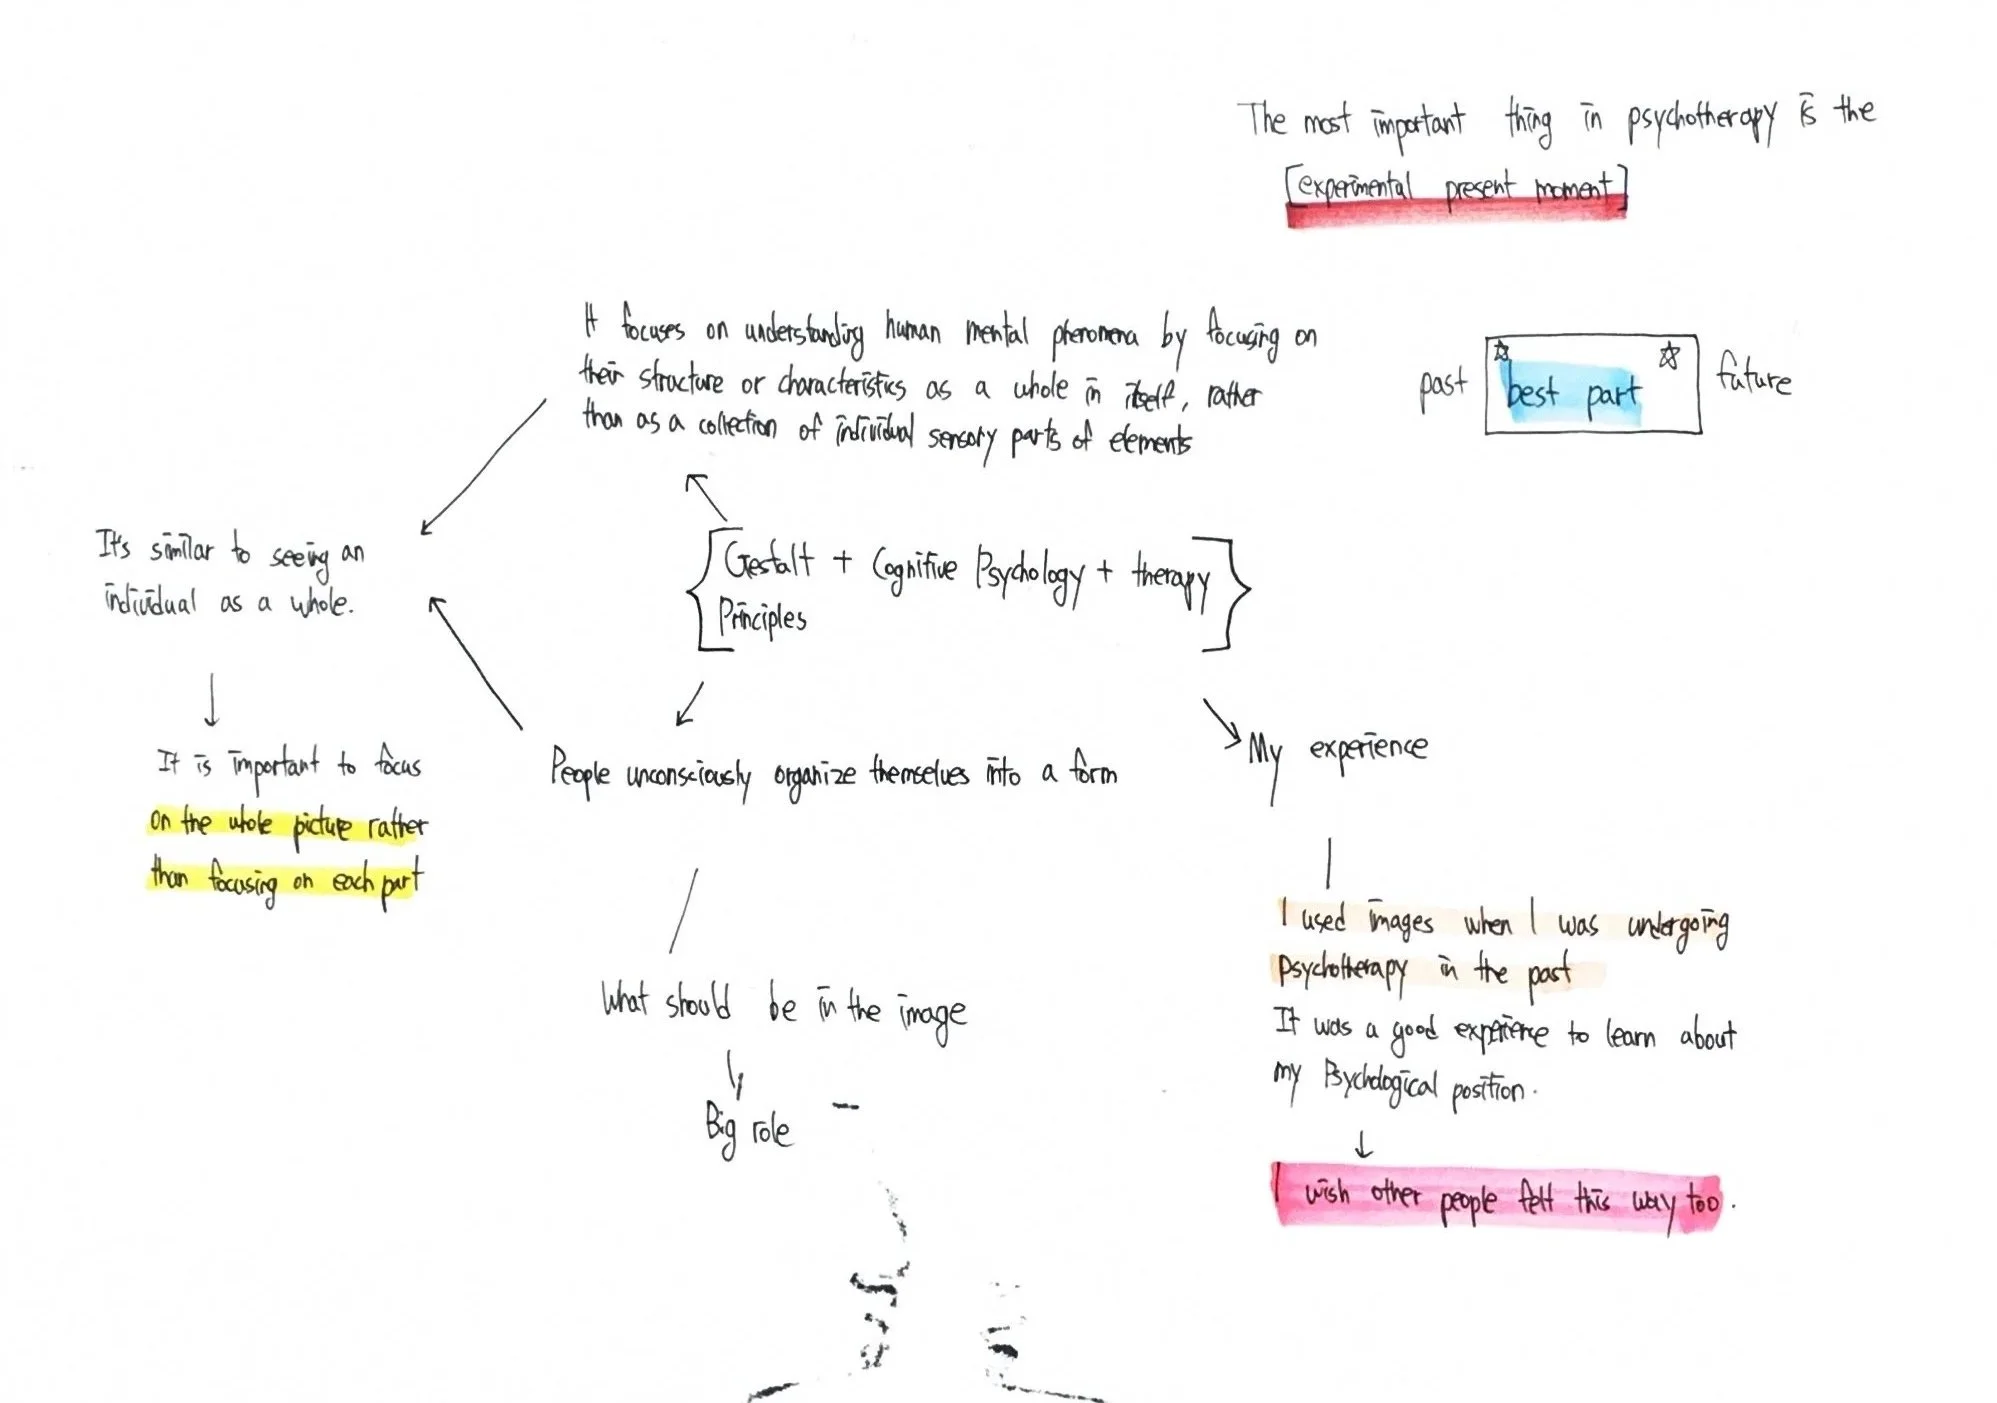 The most important thing in psychotherapy is the
[experimental present moment]
It focuses on understanding human mental phenomena by focusing on
their structure or characteristics as a whole in itself, rather
than as a collection of individual sensory parts of elements
past best part future
It's similar to seeing an
individual as a whole.
Gestalt + Cognitive Psychology + therapy
Principles
It is important to focus
on the whole picture rather
than focusing on each part
People unconsciously organize themselves into a form
My experience
What should be in the image
Big role
I used images when I was undergoing
psychotherapy in the past
It was a good experience to learn about
my Psychological position.
I wish other people felt this way too.